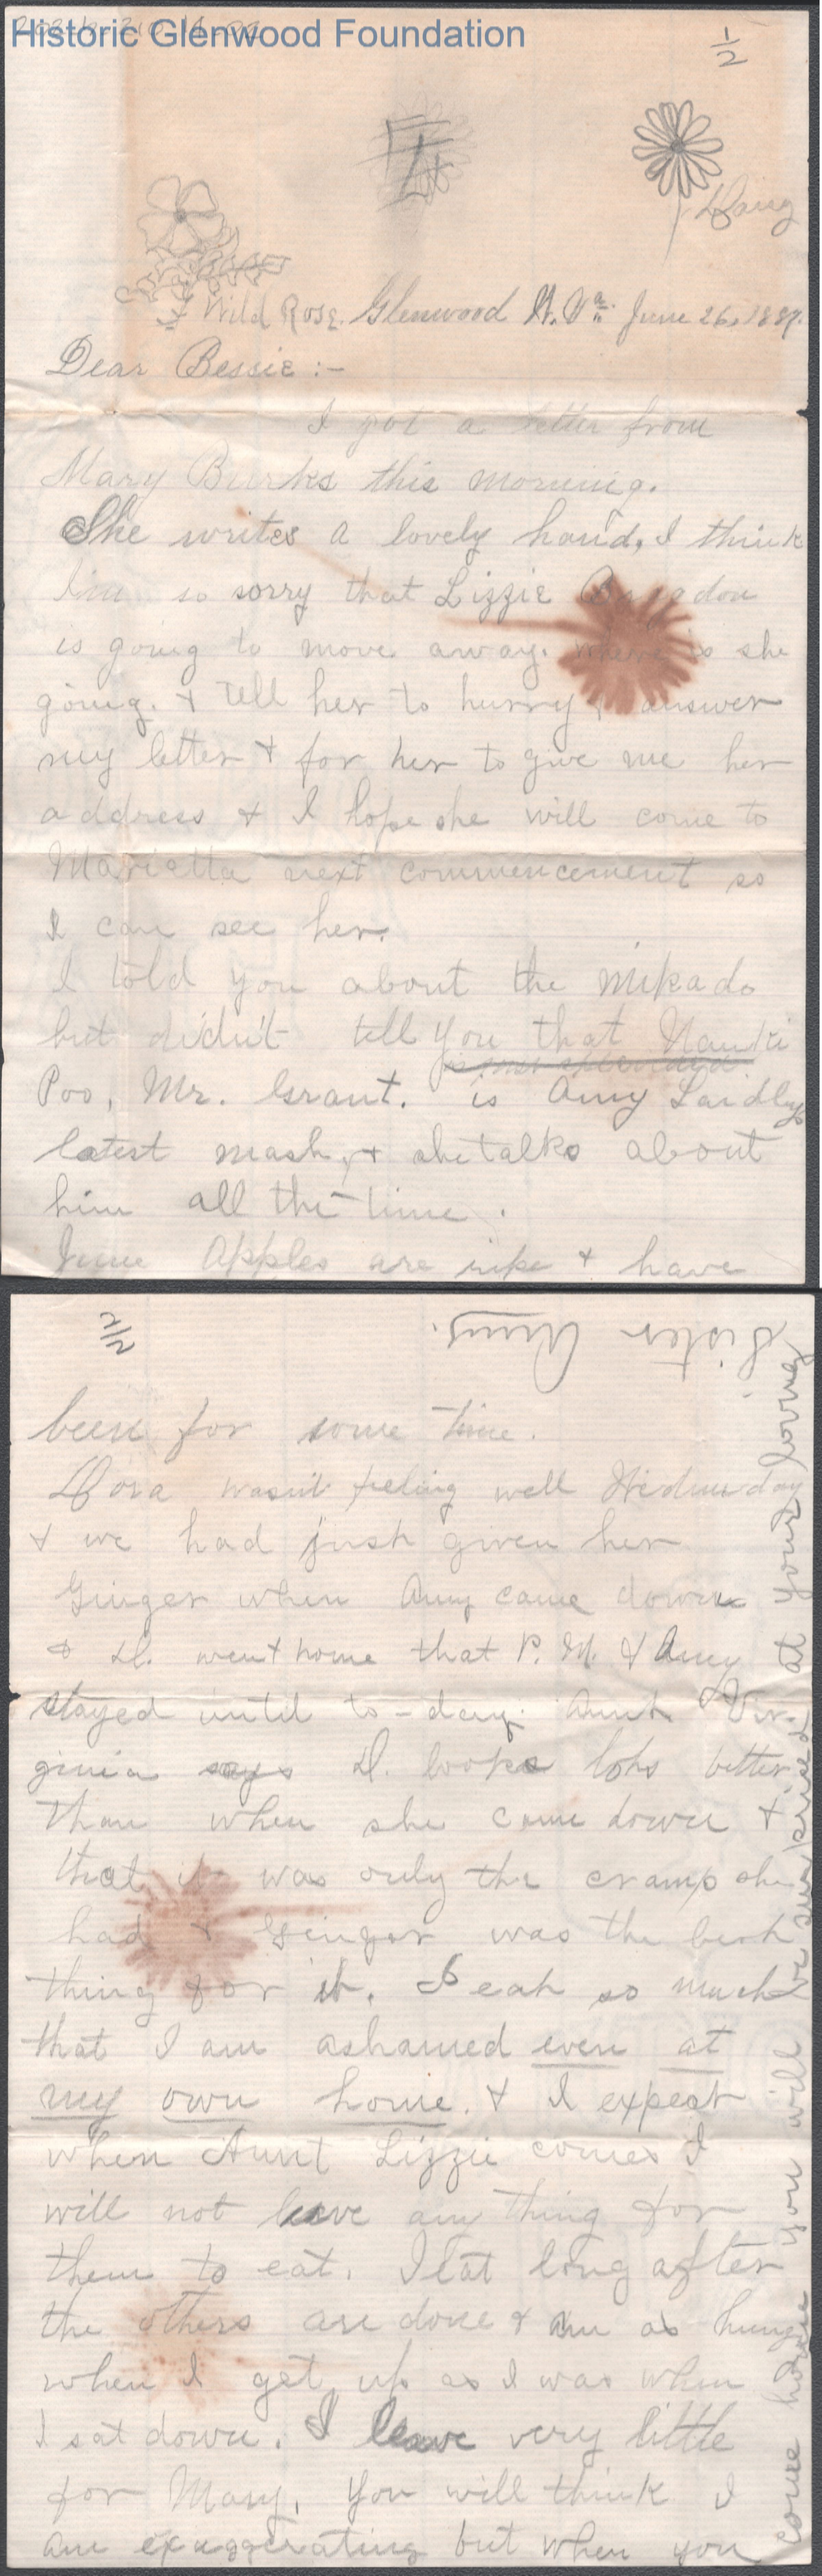 Historic Glenwood Foundation
1/2
Daisy
Wild Rose. Glenwood W. Va. June 26, 1887.
Dear Bessie :-
I got a letter from
Mary Burks this morning.
She writes a lovely hand, I think
I'm so sorry that Lizzie
is going to move away. Where is she
going. & tell her to hurry & answer
my letter & for her to give me her
address & I hope she will come to
Marietta next commencement so
I can see her.
I told you about the Mikado
but didn't tell you that Nanki
Poo, Mr. Grant. is Amy Laidleys
latest mash, & she talks about
him all the time.
June Apples are ripe & have
2/2
been for some time.
Dora wasn't feeling well Wednesday
& we had just given her
Ginger when Amy came down
& D. went home that P. M. & Amy
stayed until to-day. Aunt Vir-
ginia says D. looks lots better
than when she came down &
that it was only the cramp she
had & Ginger was the best
thing for it. I eat so much
that I am ashamed even at
my own home. & I expect
when Aunt Lizzie comes I
will not leave any thing for
them to eat. I eat long after
the others are done & am as hungry
when I get up as I was when
I sat down. I leave very little
for Mary. You will think I
am exaggerating but when you
come home you will be surprised at your loving
Sister Annie.